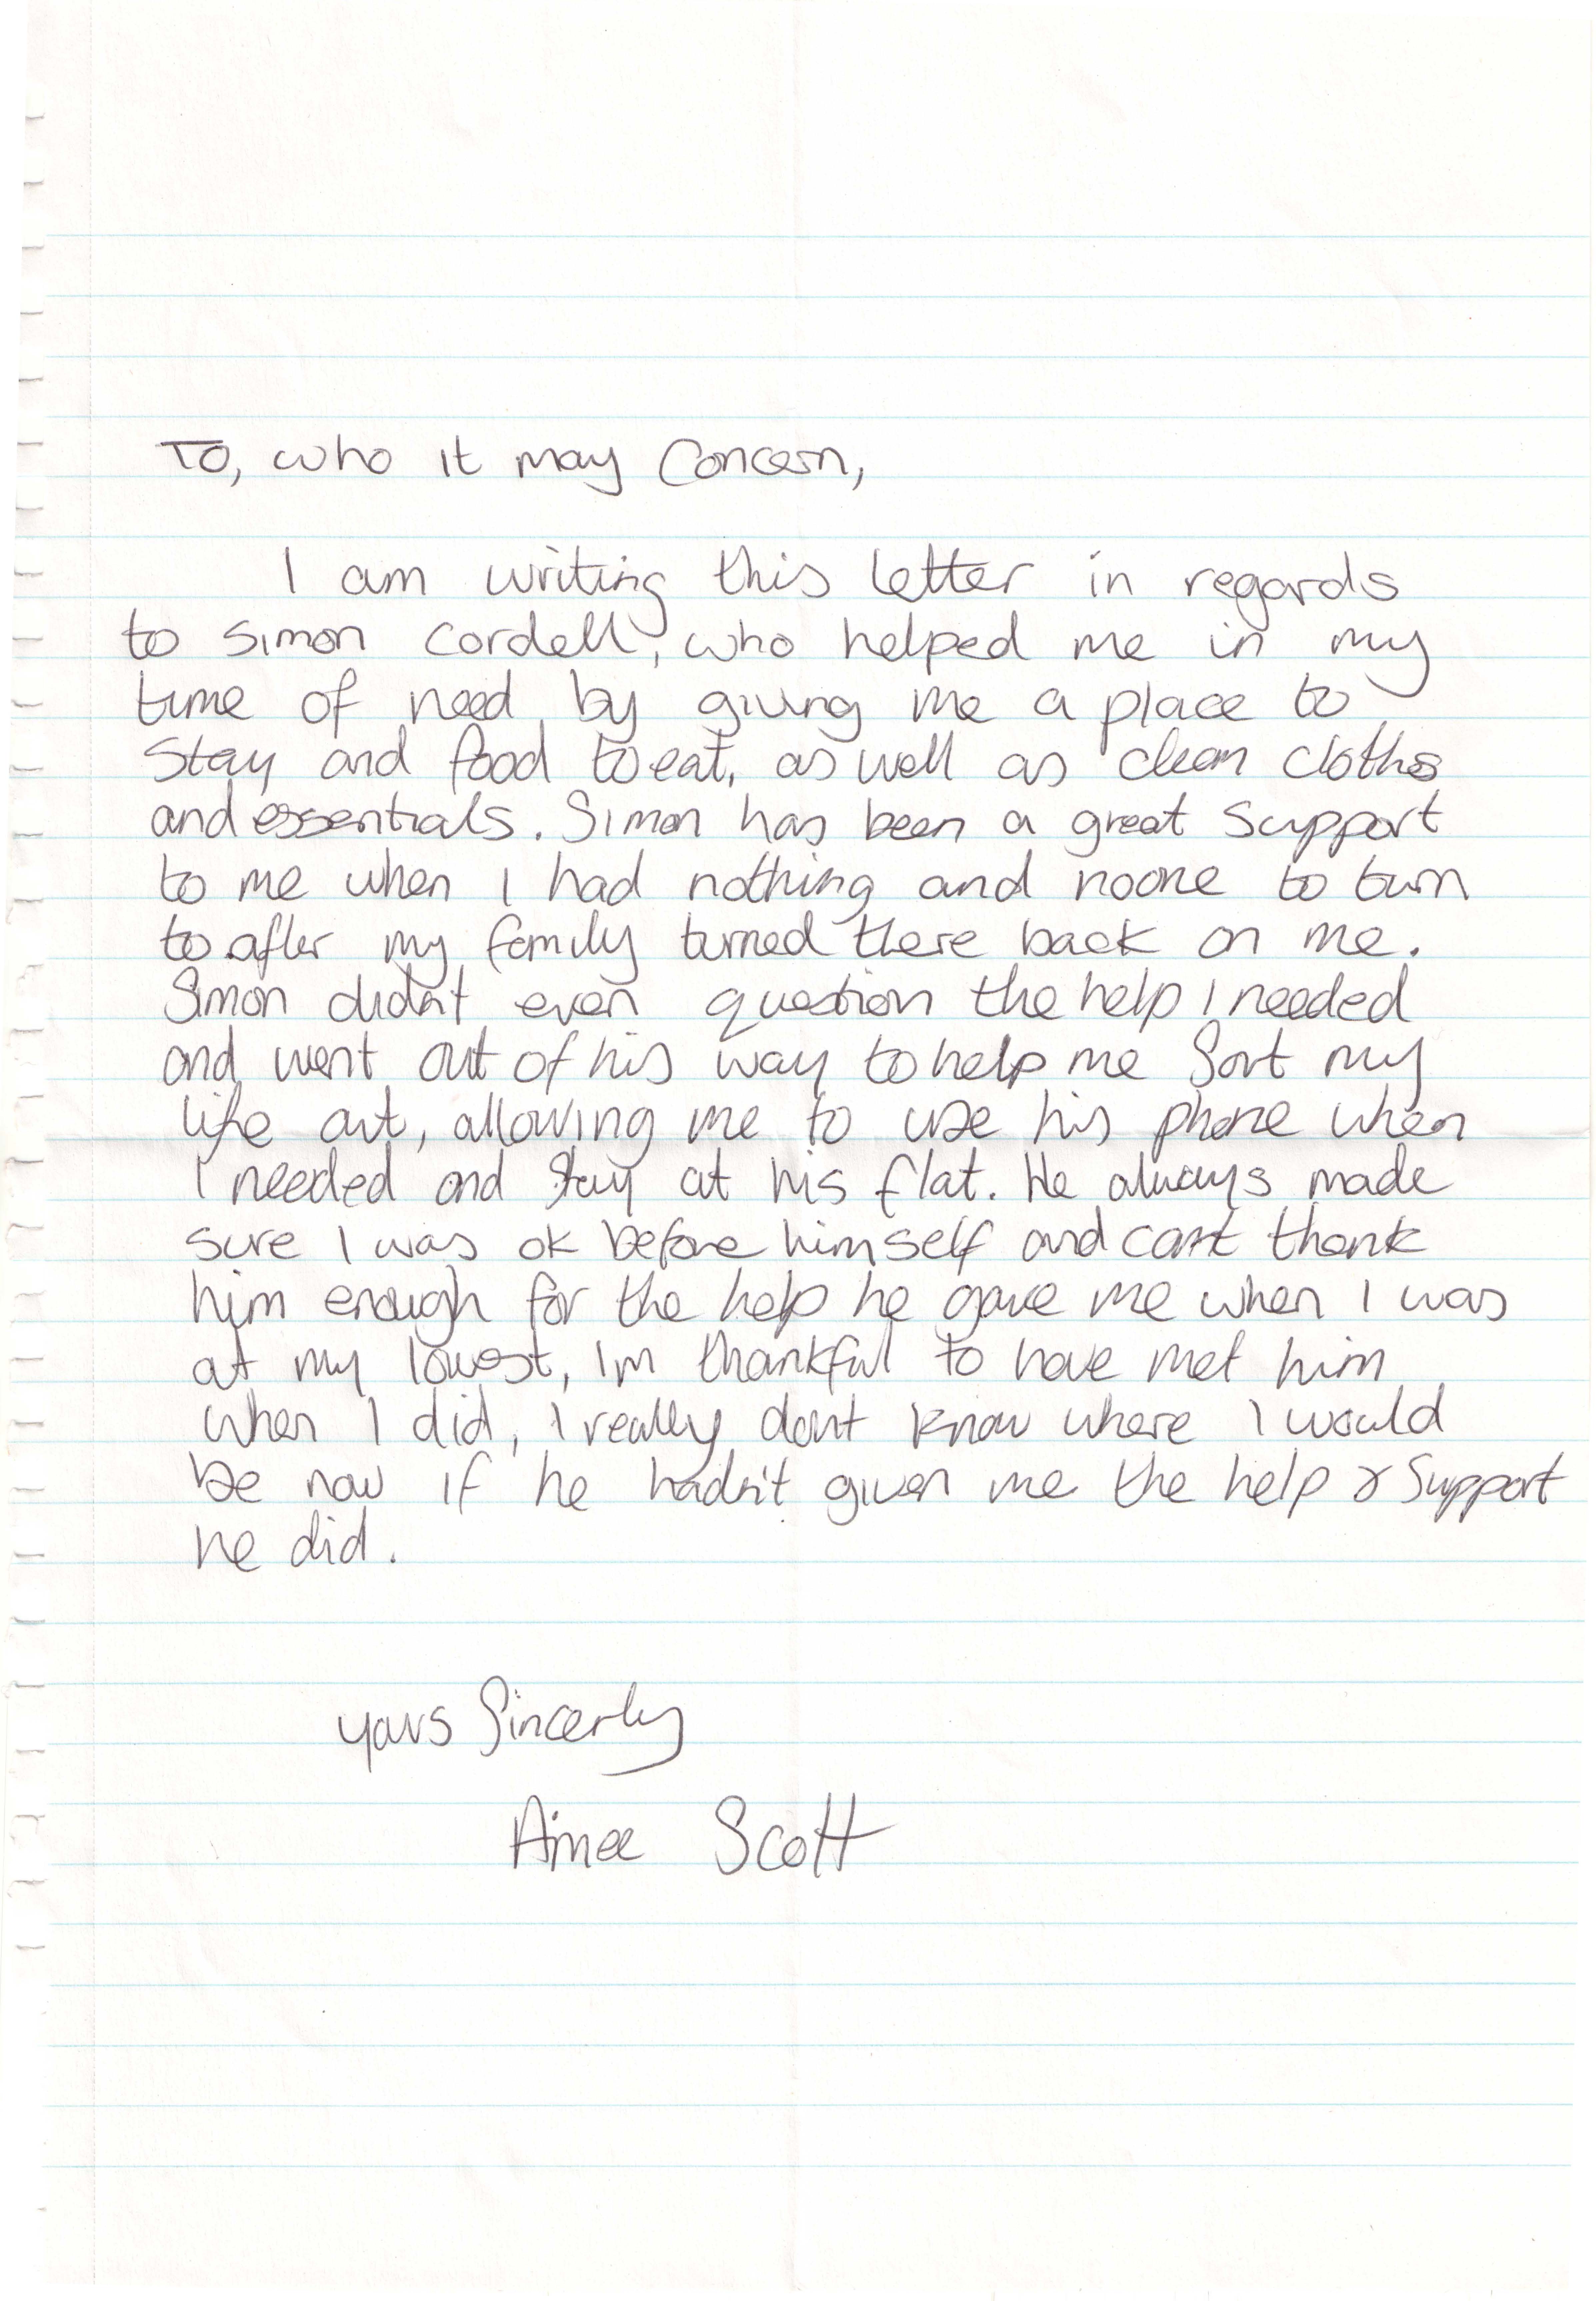 To, who it may Concern,
I am writing this letter in regards
to Simon Cordell, who helped me in my
time of need by giving me a place to
Stay and food to eat, as well as clean cloths
and essentials. Simon has been a great Support
to me when I had nothing and noone to turn
to after my family turned there back on me.
Simon didn't even question the help I needed
and went out of his way to help me Sort my
life out, allowing me to use his phone when
I needed and Stay at his flat. He always made
sure I was ok before himself and cant thank
him enough for the help he gave me when I was
at my lowest, Im thankful to have met him
when I did, I really dont know where I would
be now if he hadn't given me the help & Support
he did.
yours Sincerly
Aimee Scott